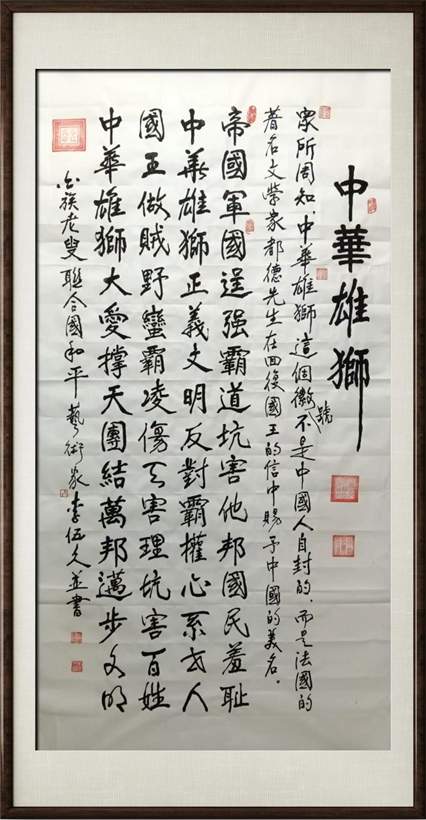 中華雄獅
衆所周知、中華雄獅這個徽號不是中國人自封的、而是法國的
著名文學家都德先生在回復國王的信中賜予中國的美名。
帝國軍國逞强霸道坑害他邦國民羞耻
中華雄獅正義文明反對霸權心系世人
國王做賊野蠻霸凌傷天害理坑害百姓
中華雄獅大愛撑天團結萬邦邁步文明
白族老叟聯合國和平藝術家李伍久並書